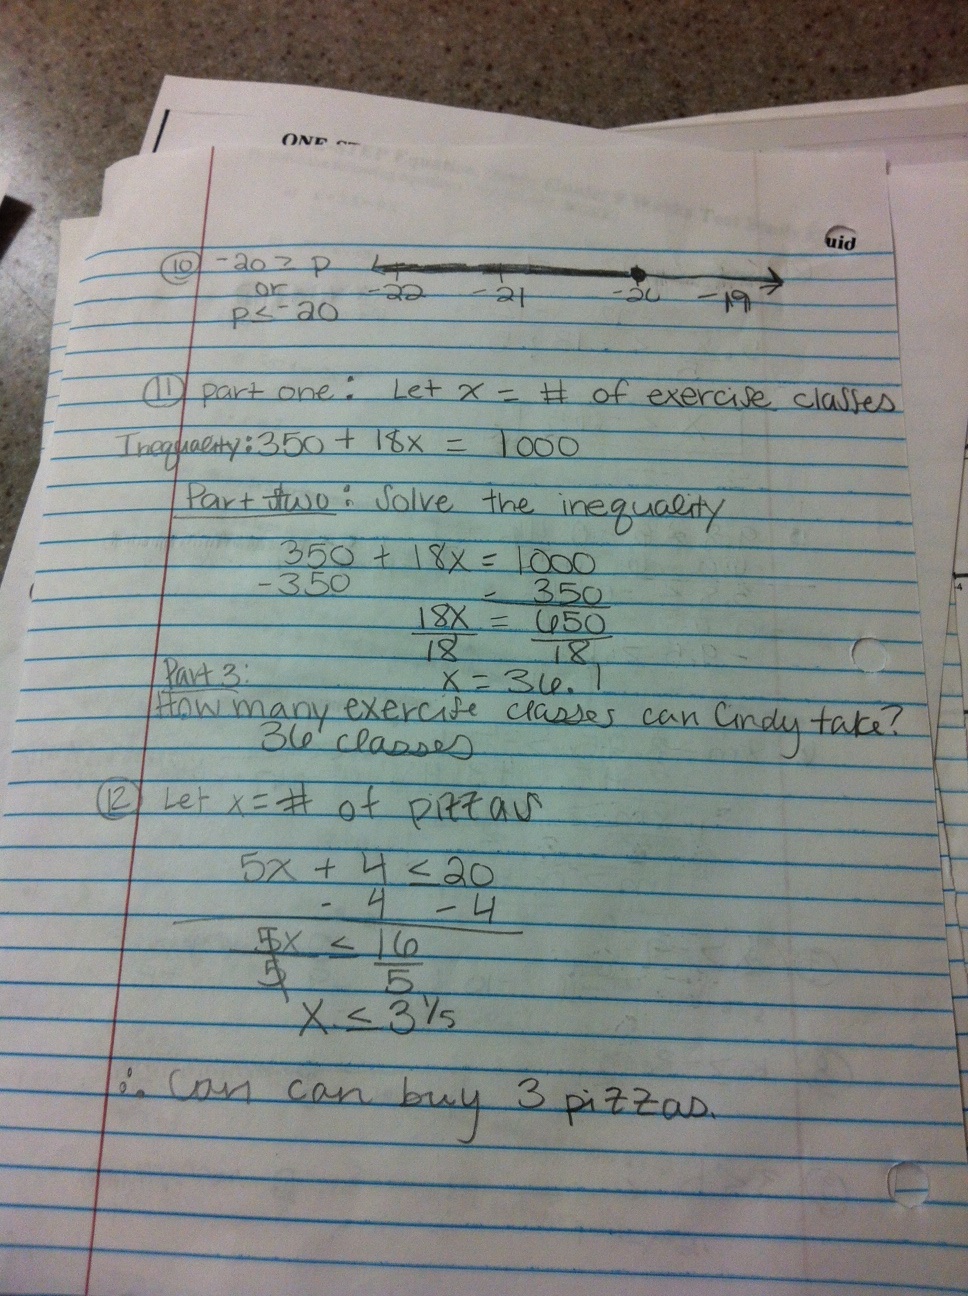 ONE
uid
⑩ -20 ≥ p
or
p ≤ -20
-22 -21 -20 -19
⑪ part one: Let x = # of exercise classes
Inequality: 350 + 18x = 1000
Part two: Solve the inequality
350 + 18x = 1000
-350 - 350
18x = 650
18 18
x = 36.1
Part 3:
How many exercise classes can Cindy take?
36 classes
⑫ Let x = # of pizzas
5x + 4 ≤ 20
- 4 - 4
5x ≤ 16
5 5
x ≤ 3 1/5
∴ Can can buy 3 pizzas.